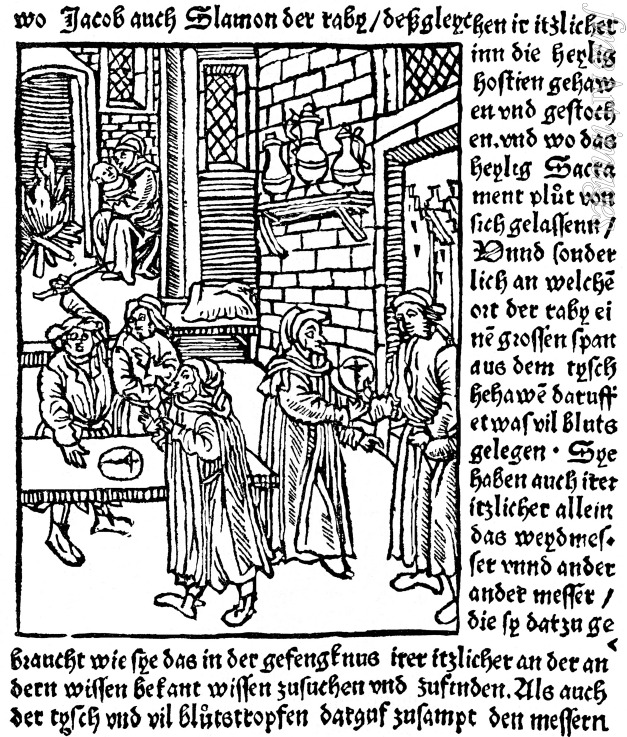 wo Jacob auch Slamon der raby / deßgleychen ir itzlicher
inn die heylig
hostien gehaw
en vnd gestoch
en. vnd wo das
heylig Sacra
ment plůt von
sich gelassenn /
Vnnd sonder
lich an welchē
ort der raby ei
nē grossen span
aus dem tysch
hehawē daruff
etwas vil bluts
gelegen · Sye
haben auch irer
itzlicher allein
das weydmes-
ser vnnd ander
ander messer /
die sy datzu ge
braucht wie sye das in der gefengknus irer itzlicher an der an
dern wissen bekant wissen zusuchen vnd zufinden. Als auch
der tysch vnd vil blůtstropfen daruf zusampt den messern